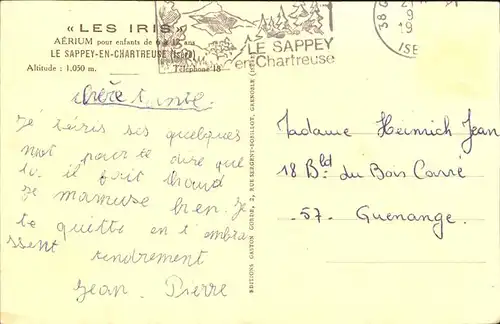 « LES IRIS »
AÉRIUM pour enfants de 6 à 12 ans
LE SAPPEY-EN-CHARTREUSE (Isère)
Altitude : 1.050 m.
Téléphone 18
LE SAPPEY
en Chartreuse
38 G
21
9
19
ISE
chère tante.
Je t'éris ses quelques
mot pour te dire que
il fait chaud
je mamuse bien. Je
te quitte en t'embra
ssent tendrement
Jean. Pierre
EDITIONS GASTON GORDE, 2, RUE SERGENT-BOBILLOT, GRENOBLE
Madame Heinrich Jean
18 Bld du Bois Carré
57. Guenange.